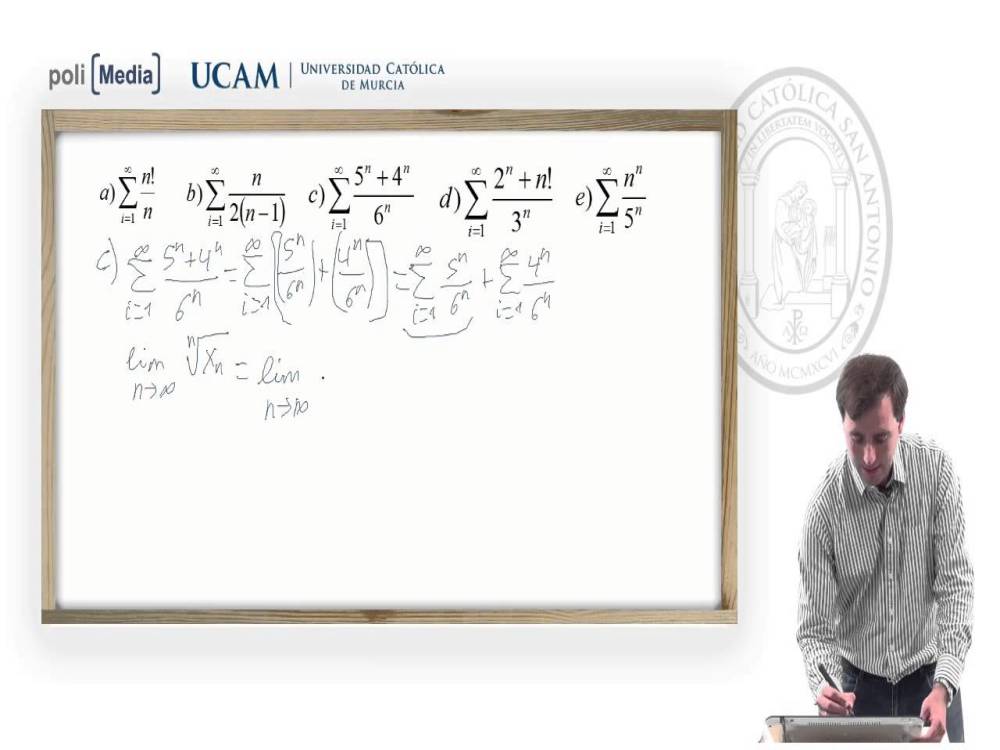 poli [Media] UCAM | UNIVERSIDAD CATÓLICA DE MURCIA
CATÓLICA SAN ANTONIO
IN LIBERTATEM VOCATI
AÑO MCMXCVI
a) \sum_{i=1}^{\infty} \frac{n!}{n} b) \sum_{i=1}^{\infty} \frac{n}{2(n-1)} c) \sum_{i=1}^{\infty} \frac{5^n + 4^n}{6^n} d) \sum_{i=1}^{\infty} \frac{2^n + n!}{3^n} e) \sum_{i=1}^{\infty} \frac{n^n}{5^n}
c) \sum_{i=1}^{\infty} \frac{5^n + 4^n}{6^n} = \sum_{i=1}^{\infty} \left[ \left( \frac{5^n}{6^n} \right) + \left( \frac{4^n}{6^n} \right) \right] = \sum_{i=1}^{\infty} \frac{5^n}{6^n} + \sum_{i=1}^{\infty} \frac{4^n}{6^n}
\lim_{n \to \infty} \sqrt[n]{x_n} = \lim_{n \to \infty} .